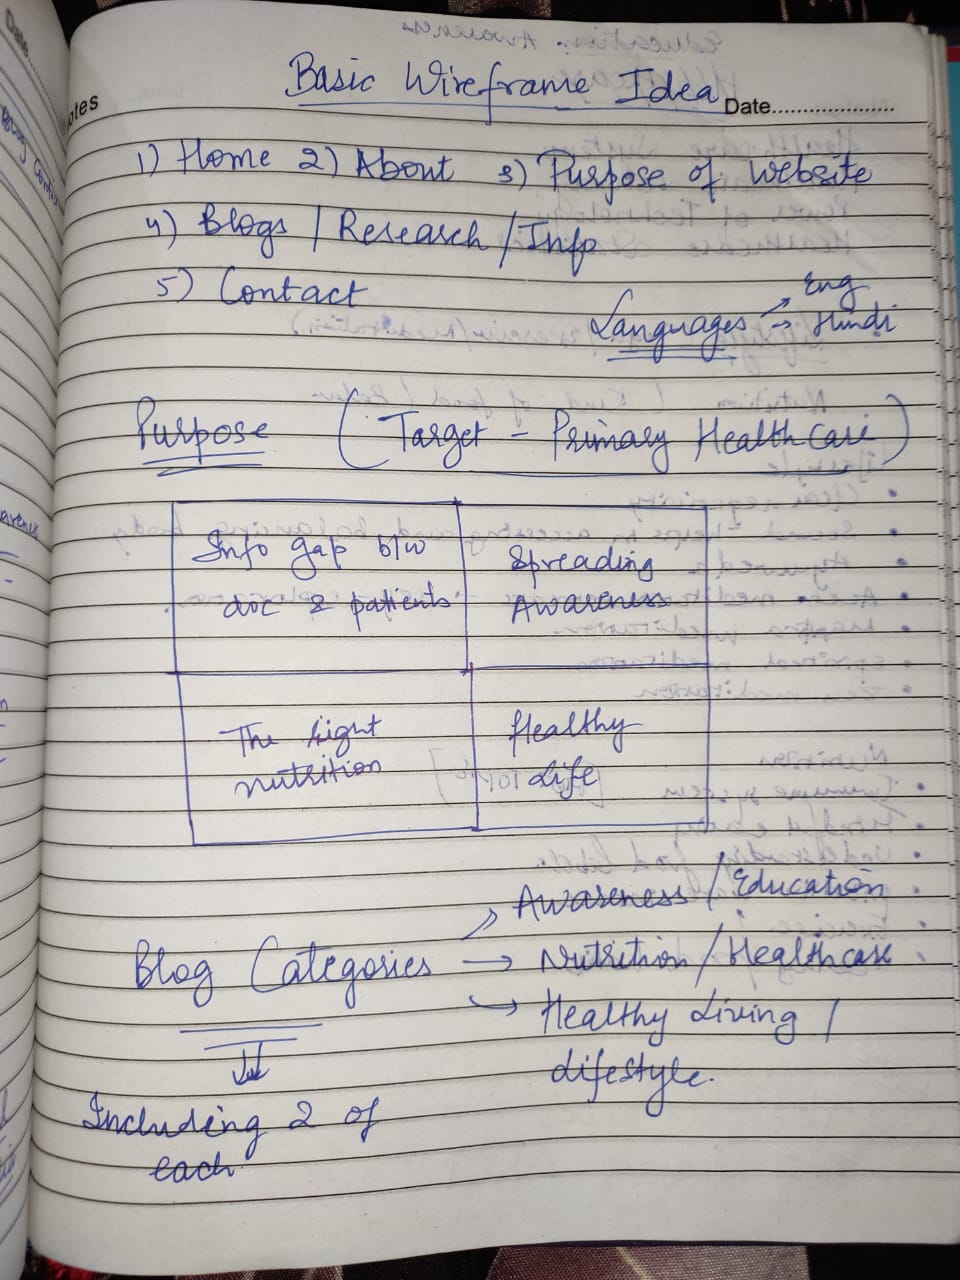 Basic Wireframe Idea
otes
Date....................
1) Home 2) About 3) Purpose of Website
4) Blogs / Research / Info
5) Contact
Languages → Eng
→ Hindi
Purpose (Target - Primary Healthcare)
Info gap b/w
doc & patients
Spreading
Awareness
The right
nutrition
Healthy
Life
Blog Categories
→ Awareness / Education
→ Nutrition / Healthcare
→ Healthy Living /
Lifestyle.
Including 2 of
each